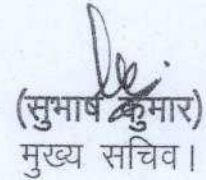 (सुभाष कुमार)
मुख्य सचिव।